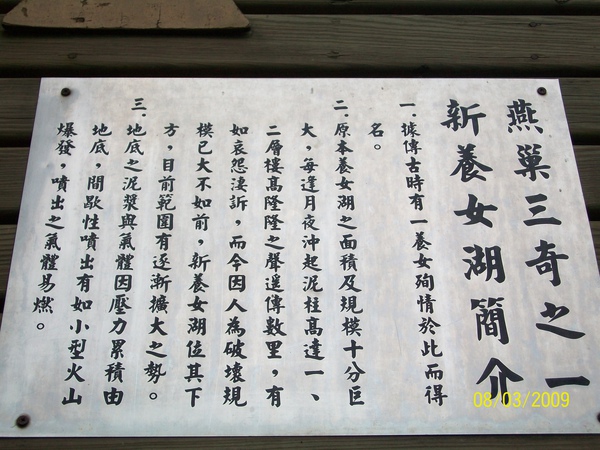 燕巢三奇之一
新養女湖簡介
一、據傳古時有一養女殉情於此而得
名。
二、原本養女湖之面積及規模十分巨
大，每逢月夜沖起泥柱高達一、
二層樓高隆隆之聲遙傳數里，有
如哀怨淒訴，而今因人為破壞規
模已大不如前，新養女湖位其下
方，目前範圍有逐漸擴大之勢。
三、地底之泥漿與氣體因壓力累積由
地底，間歇性噴出有如小型火山
爆發，噴出之氣體易燃。
08/03/2009